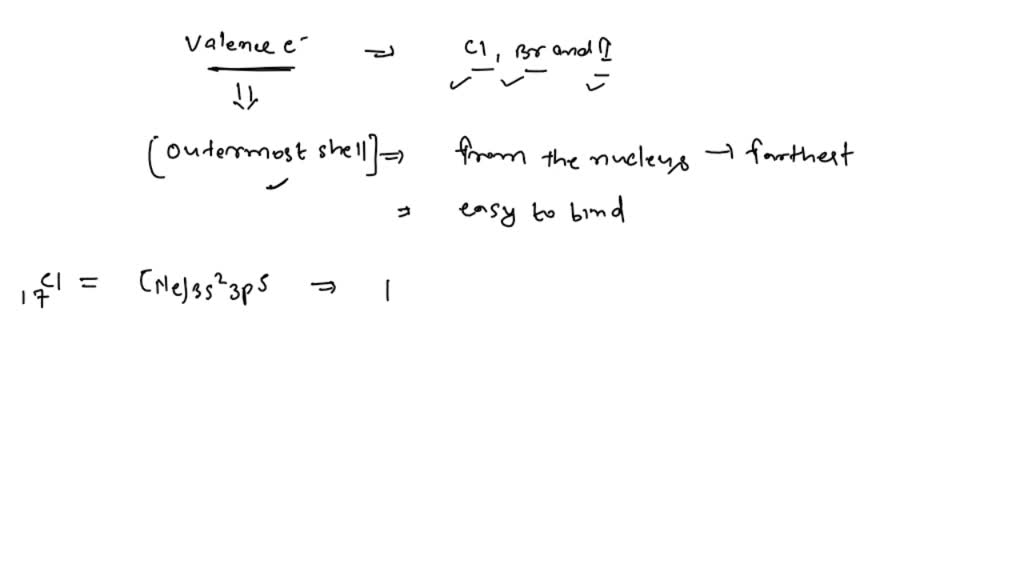 Valence e⁻ ⇒ Cl, Br and I
⇓
[outermost shell] ⇒ from the nucleys → farthest
⇒ easy to bind
₁₇Cl = [Ne]3s²3p⁵ ⇒ |